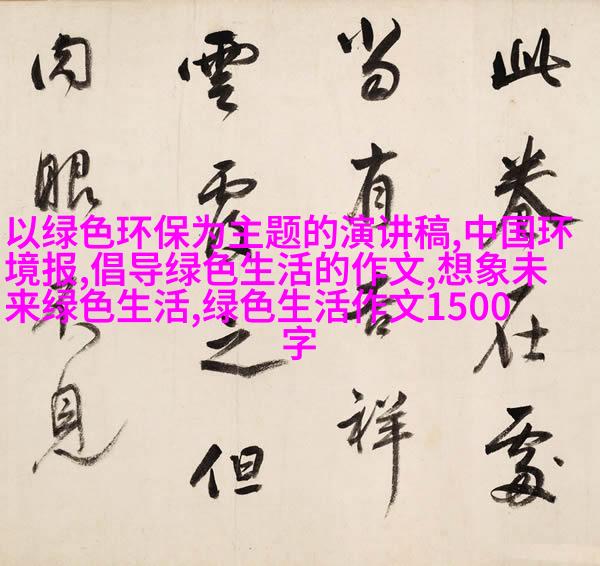 此卷在處
當有吉祥
雲覆之但
肉眼不見
以绿色环保为主题的演讲稿,中国环
境报,倡导绿色生活的作文,想象未
来绿色生活,绿色生活作文1500
字